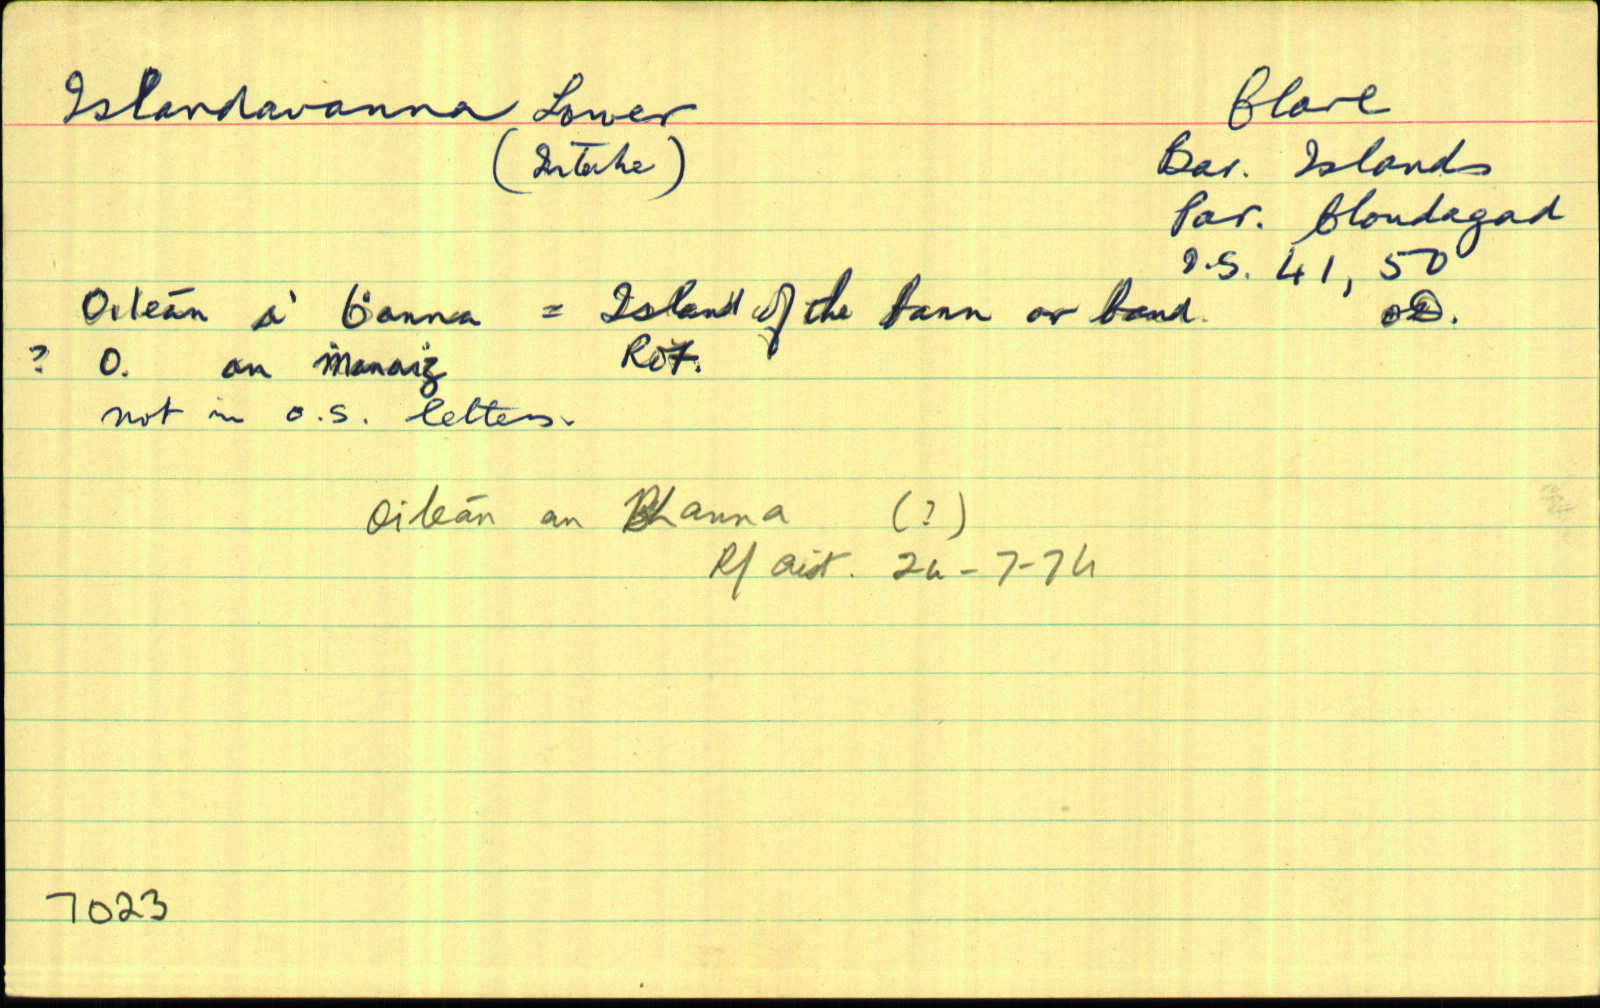 Islandavanna Lower
Clare
(Intake)
Bar. Islands
Par. Clondagad
O.S. 41, 50
Oileán a' ḃanna = Island of the bann or band. OD.
? O. an ṁanaiġ Rof.
not in O.S. letters.
Oileán an Bhanna (?)
Rf aist. 24-7-74
7023